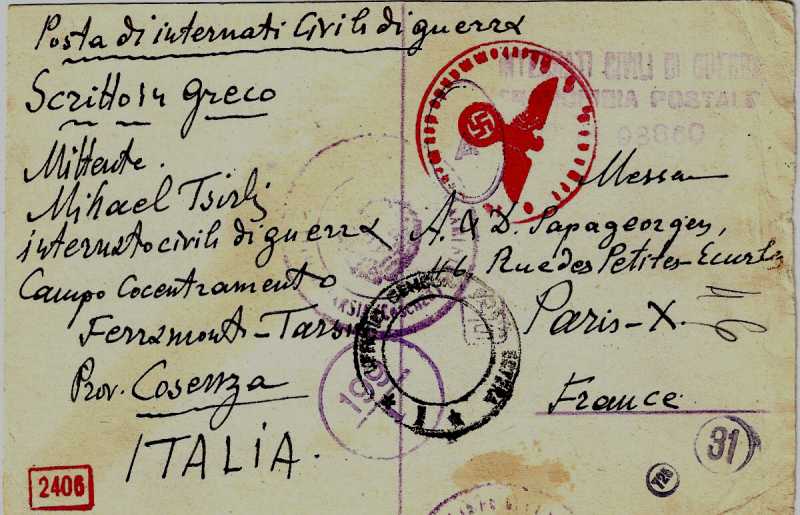 Posta di internati Civili di guerra
Scritto in greco
Mittente.
Mihael Tsirli
internato civili di guerra
Campo Cocentramento
Ferramonti-Tarsia
Prov. Cosenza
ITALIA.
INTERNATI CIVILI DI GUERRA
POSTALE
Messrs
A. & D. Papageorges,
46, Rue des Petites-Ecuries
Paris-X.
France
2406
31
726